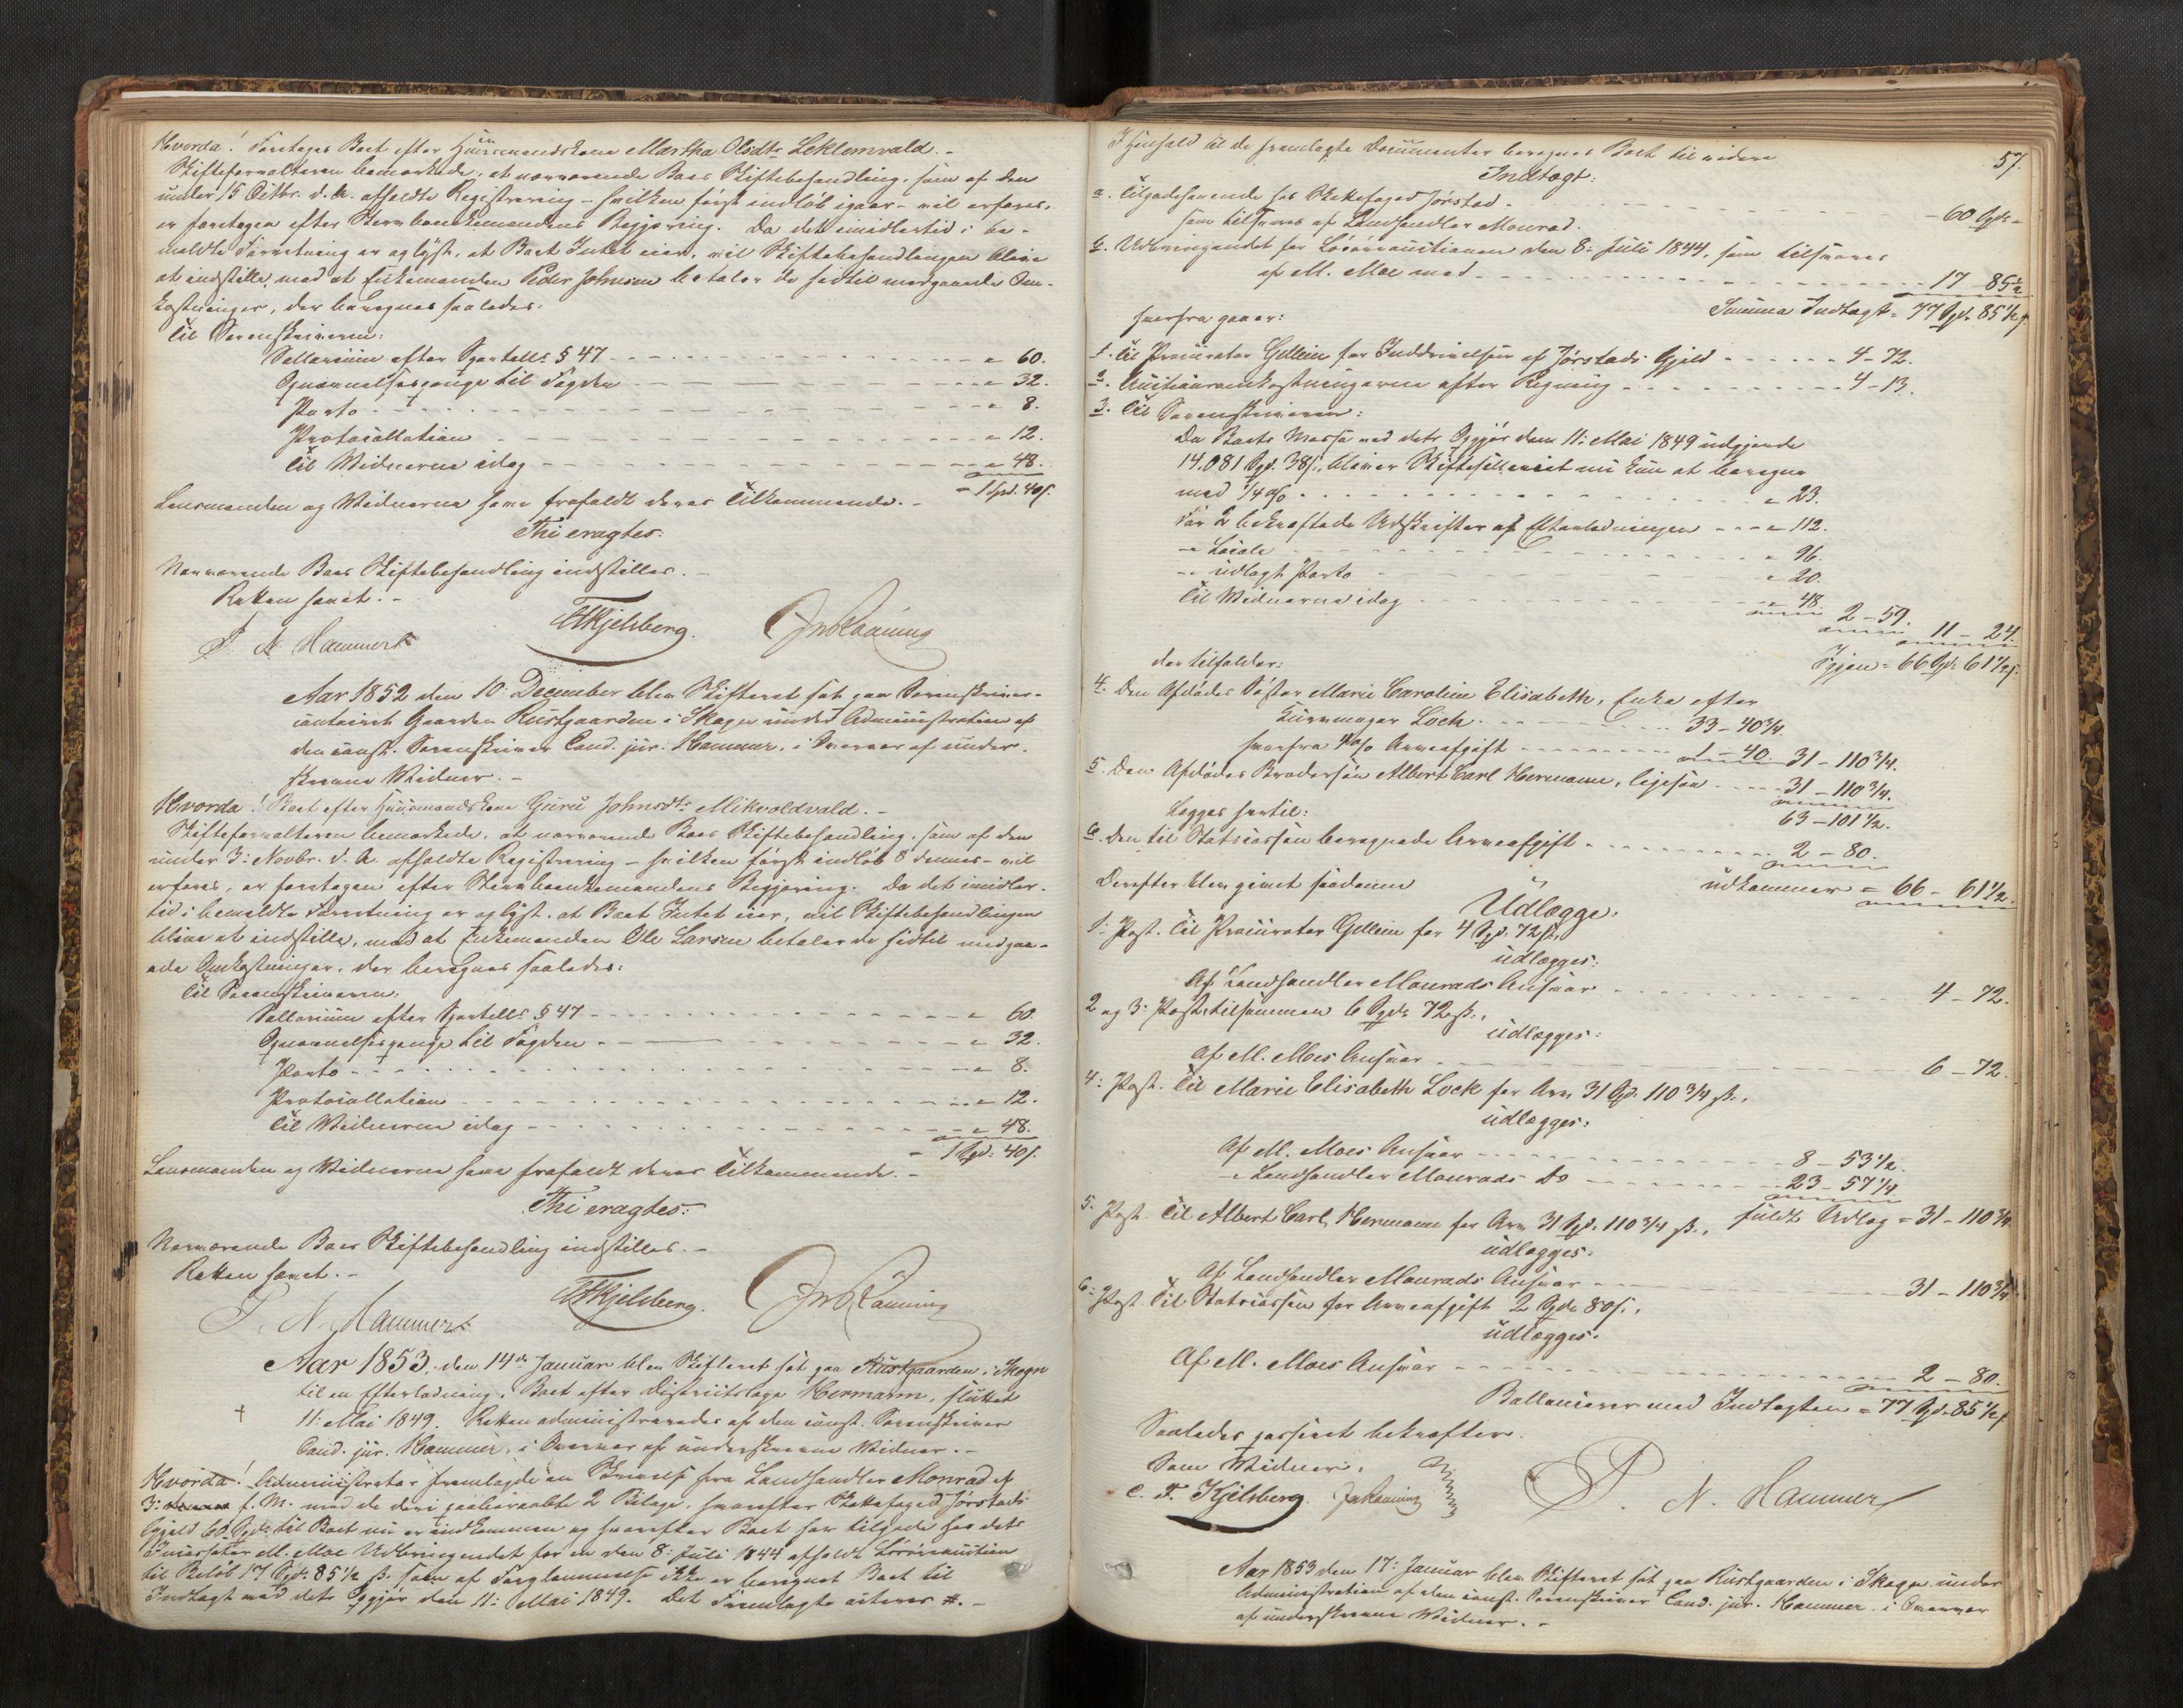 Hvorda! Foretages Boet efter Huusmandskone Martha Olsdtr Leklemvald. -
Skifteforvalteren bemærkede, at nærværende Boes Skiftebehandling, som af den
under 15 Octbr. d. A. afholdte Registrering - hvilken først indløb igaar - vil erfares,
er foretagen efter Stervboenkemandens Begjæring. Da det imidlertid i be-
meldte Forretning er oplyst, at Boet Intet eier, vil Skiftebehandlingen blive
at indstille, mod at Enkemanden Peder Johnsen betaler de hidtil medgaaede Om-
kostninger, der beregnes saaledes:
Til Sorenskriveren:
Sallarium efter Sportells § 47 - " 60.
Qvænnelsespenge til Fogden - " 32.
Porto - " 8.
Protocollation - " 12.
Til Vidnerne idag - " 48.
= 1 Spd. 40 s.
Lensmanden og Vidnerne have frafaldt deres Tilkommende. -
Thi eragtes:
Nærværende Boes Skiftebehandling indstilles. -
Retten hævet. -
P. N. Hammer CFKjelsberg. JnRanning
Aar 1852 den 10 December blev Skifteret sat paa Sorenskriver-
contoiret Gaarden Rustgaarden i Skogn under Administration af
den const. Sorenskriver Cand. jur. Hammer, i Overvær af under-
skrevne Vidner. -
Hvorda! Boet efter Huusmandskone Guru Johnsdtr Mikvoldvald. -
Skifteforvalteren bemærkede, at nærværende Boes Skiftebehandling, som af den
under 3: Novbr. d. A. afholdte Registrering - hvilken først indløb 8 dennes - vil
erfares, er foretagen efter Stervboenkemandens Begjæring. Da det imidler-
tid i bemeldte Forretning er oplyst, at Boet Intet eier, vil Skiftebehandlingen
blive at indstille, mod at Enkemanden Ole Larsen betaler de hidtil medgaa-
ede Omkostninger, der beregnes saaledes:
Til Sorenskriveren:
Sallarium efter Sportells § 47 - " 60.
Qvænnelsespenge til Fogden - " 32.
Porto - " 8.
Protocollation - " 12.
Til Vidnerne idag - " 48.
= 1 Spd: 40 s.
Lensmanden og Vidnerne have frafaldt deres Tilkommende. -
Thi eragtes:
Nærværende Boes Skiftebehandling indstilles. -
Retten hævet. -
P. N. Hammer CFKjelsberg. JnRanning
Aar 1853. den 14de Januar blev Skifteret sat paa Rustgaarden i Skogn
til en Efterlodning i Boet efter Districtslæge Hermann, sluttet
† 11: Mai 1849. Retten administreredes af den const. Sorenskriver
Cand. jur. Hammer, i Overvær af underskrevne Vidner. -
Hvorda! Administrator fremlagde en Skrivelse fra Landhandler Monrad af
3: f. M. med de deri paaberaabte 2 Bilage, hvorefter Skattefoged Jørstads
Gjæld 60 Spd. til Boet nu er indkommen og hvorefter Boet har tilgode hos dets
Incassator M. Moe Udbringendet for en den 8: Juli 1844 afholdt Løsøreauction
til Beløb 17 Spd. 85 1/2 s. som af Forglemmelse ikke er beregnet Boet til
Indtægt med dets Opgjør den 11: Mai 1849. Det Fremlagte acteres #. -
57.
I Henhold til de fremlagte Documenter beregnes Boet til videre
Indtægt:
a. Tilgodehavende hos Skattefoged Jørstad -
som tilsvares af Landhandler Monrad. - 60 Spd. -
b. Udbringendet for Løsøreauctionen den 8: Juli 1844, som tilsvares
af M. Moe med - 17 - 85 1/2
Summa Indtægt = 77 Spd. 85 1/2 s.
hvorfra gaaer:
1. Til Procurator Gellein for Inddrivelsen af Jørstads Gjæld - 4 - 72.
2. Auctionsomkostningerne efter Regning - 4 - 13.
3. Til Sorenskriveren:
Da Boets Masse ved dets Opgjør den 11: Mai 1849 udgjorde
14,081 Spd. 38 s., bliver Skiftesallariet nu kun at beregne
med 1/4 o/o - " 23.
For 2 bekræftede Udskrifter af Efterlodningen - " 112.
" Locale - " 96.
" udlagt Porto - " 20.
Til Vidnerne idag - " 48.
2 - 59.
11 - 24.
Igjen = 66 Spd. 61 1/2 s.
der tilfalder:
4. Den Afdødes Søster Marie Caroline Elisabeth, Enke efter
Loch - 33 - 40 3/4.
hvorfra 4 o/o Arveafgift - 1 - 40. 31 - 110 3/4.
5. Den Afdødes Brodersøn Albert Carl Hermann, ligesaa - 31 - 110 3/4.
63 - 101 1/2.
Lægges hertil:
6. Den til Statscassen beregnede Arveafgift - 2 - 80.
udkommer = 66 - 61 1/2
Derefter blev givet saadanne
Udlægge:
1: Post. Til Procurator Gellein for 4 Spd. 72 s.,
udlægges:
Af Landhandler Monrads Ansvar - 4 - 72.
2 og 3: Post, tilsammen 6 Spd. 72 s.,
udlægges:
Af M. Moes Ansvar - 6 - 72.
4: Post. Til Marie Elisabeth Lock for Arv 31 Spd. 110 3/4 s.,
udlægges:
Af M. Moes Ansvar - 8 - 53 1/2.
" Landhandler Monrads Do - 23 - 57 1/4
fuldt Udlæg = 31 - 110 3/4
5. Post. Til Albert Carl Hermann for Arv 31 Spd. 110 3/4 s.,
udlægges:
Af Landhandler Monrads Ansvar - 31 - 110 3/4
6: Post. Til Statscassen for Arveafgift 2 Spd. 80 s.,
udlægges:
Af M. Moes Ansvar - 2 - 80.
Ballancerer med Indtægten = 77 Spd. 85 1/2 s.
Saaledes passeret bekræftes.
Som Vidner:
C. F. Kjelsberg. JnRanning P. N. Hammer
Aar 1853 den 17: Januar blev Skifteret sat paa Rustgaarden i Skogn under
Administration af den const. Sorenskriver Cand. jur. Hammer i Overvær
af underskrevne Vidner. -